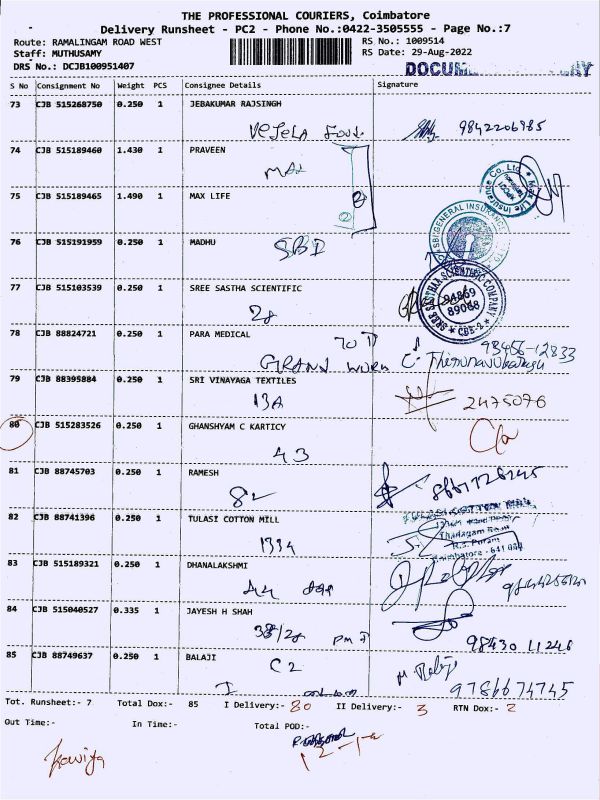 THE PROFESSIONAL COURIERS, Coimbatore
Delivery Runsheet - PC2 - Phone No.:0422-3505555 - Page No.:7
Route: RAMALINGAM ROAD WEST RS No.: 1009514
Staff: MUTHUSAMY RS Date: 29-Aug-2022
DRS No.: DCJB100951407
S No Consignment No Weight PCS Consignee Details Signature
73 CJB 515268750 0.250 1 JEBAKUMAR RAJSINGH
9842206985
74 CJB 515189460 1.430 1 PRAVEEN
MAX
75 CJB 515189465 1.490 1 MAX LIFE
Max Life Insurance Co. Ltd
SBI GENERAL INSURANCE
76 CJB 515191959 0.250 1 MADHU
SBI
77 CJB 515103539 0.250 1 SREE SASTHA SCIENTIFIC
28
SREE SASTHAA SCIENTIFIC COMPANY
94869
89068
CBE-2
78 CJB 88824721 0.250 1 PARA MEDICAL
70 98456-12833
GRAND WORK
79 CJB 88395884 0.250 1 SRI VINAYAGA TEXTILES
13A 2475076
80 CJB 515283526 0.250 1 GHANSHYAM C KARTICY
43
81 CJB 88745703 0.250 1 RAMESH
82
82 CJB 88741396 0.250 1 TULASI COTTON MILL
Thadagam Road
R.S. Puram
Coimbatore - 641 002
1334
83 CJB 515189321 0.250 1 DHANALAKSHMI
84 CJB 515040527 0.335 1 JAYESH H SHAH
38/28 98430 11246
85 CJB 88749637 0.250 1 BALAJI
C2
9786674745
Tot. Runsheet:- 7 Total Dox:- 85 I Delivery:- 80 II Delivery:- 3 RTN Dox:- 2
Out Time:- In Time:- Total POD:-
Kaviya